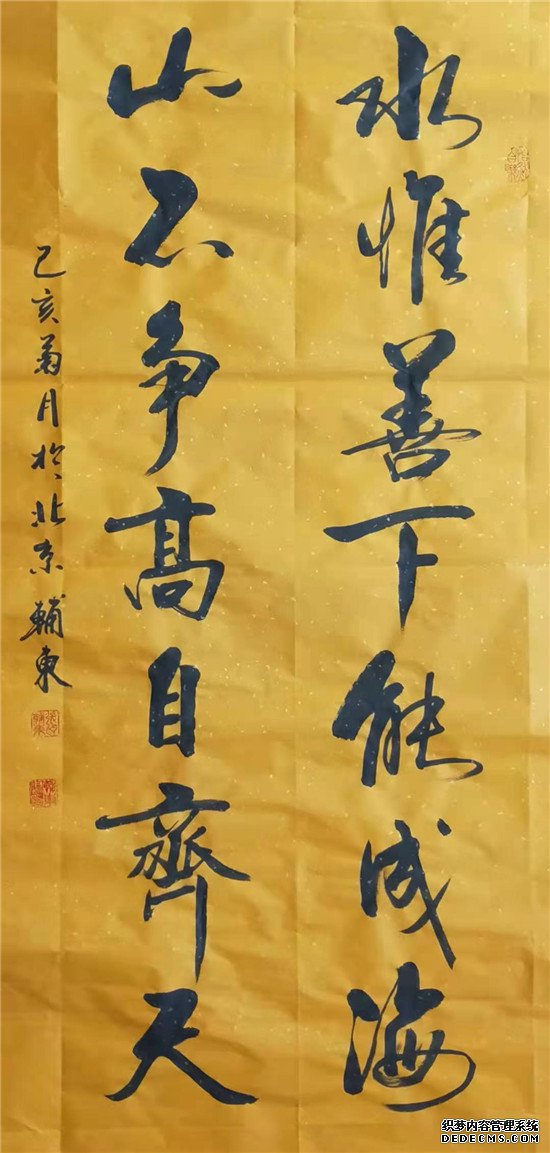 水惟善下能成海
山不争高自齊天
己亥菊月於北京輔東
织梦内容管理系统
DEDECMS.COM